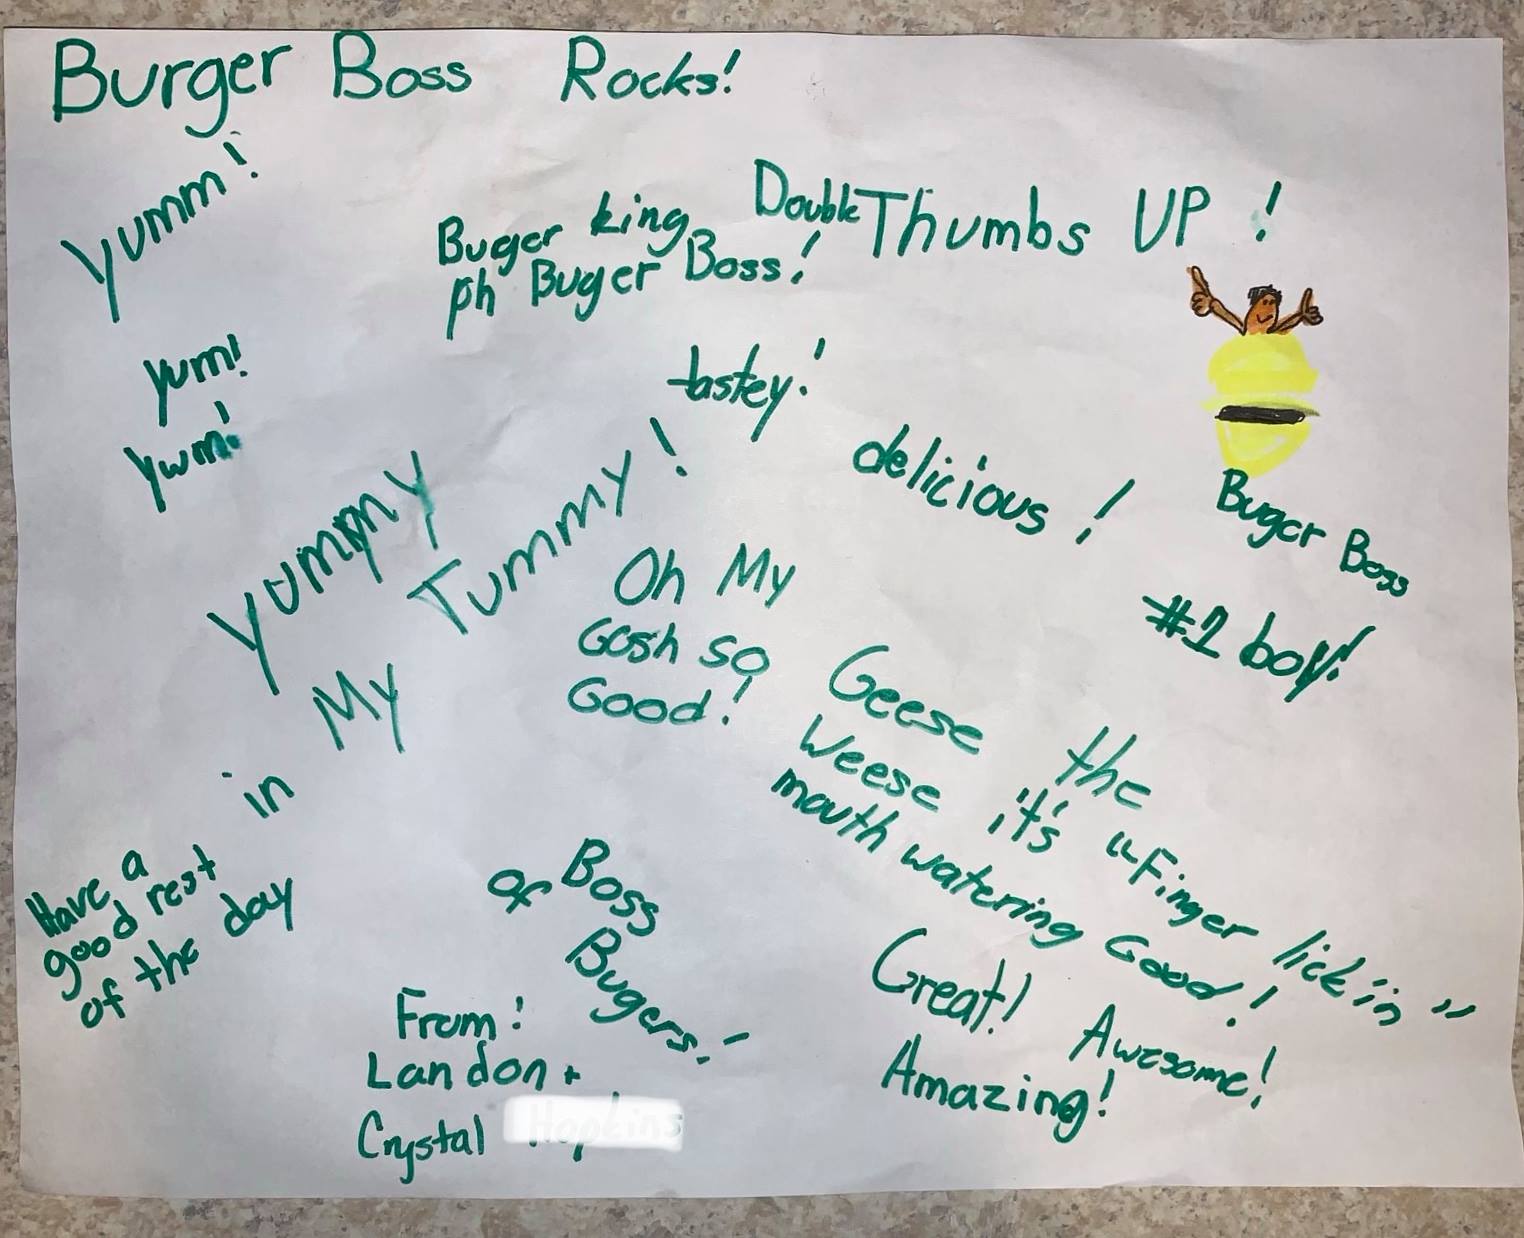 Burger Boss Rocks!
Yumm!
Double Thumbs UP!
Buger king
ph Buger Boss!
Yum!
Yum!
tastey!
delicious!
Buger Boss
#1 boy!
Yummy
in My Tummy!
Oh My
Gosh so
Good!
Geese the
Weese it's "Finger lick'in"
mouth watering Good!
Great! Awesome!
Amazing!
Boss
of Bugers!
Have a
good rest
of the day
From!
Landon +
Crystal